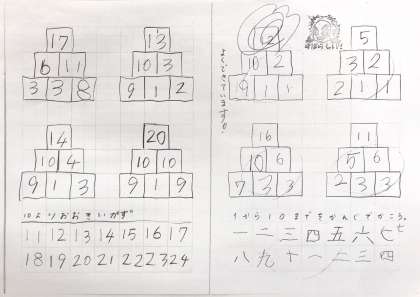 17
6 11
3 3 8
13
10 3
9 1 2
14
10 4
9 1 3
20
10 10
9 1 9
10よりおおきいかず
11 12 13 14 15 16 17
18 19 20 21 22 23 24
よくできています。
12
10 2
9 1 1
すばらしい!
5
3 2
2 1 1
16
10 6
7 3 3
11
5 6
2 3 3
1から10までをかんじでかこう。
一 二 三 四 五 六 七 七
八 九 十 一 二 三 四